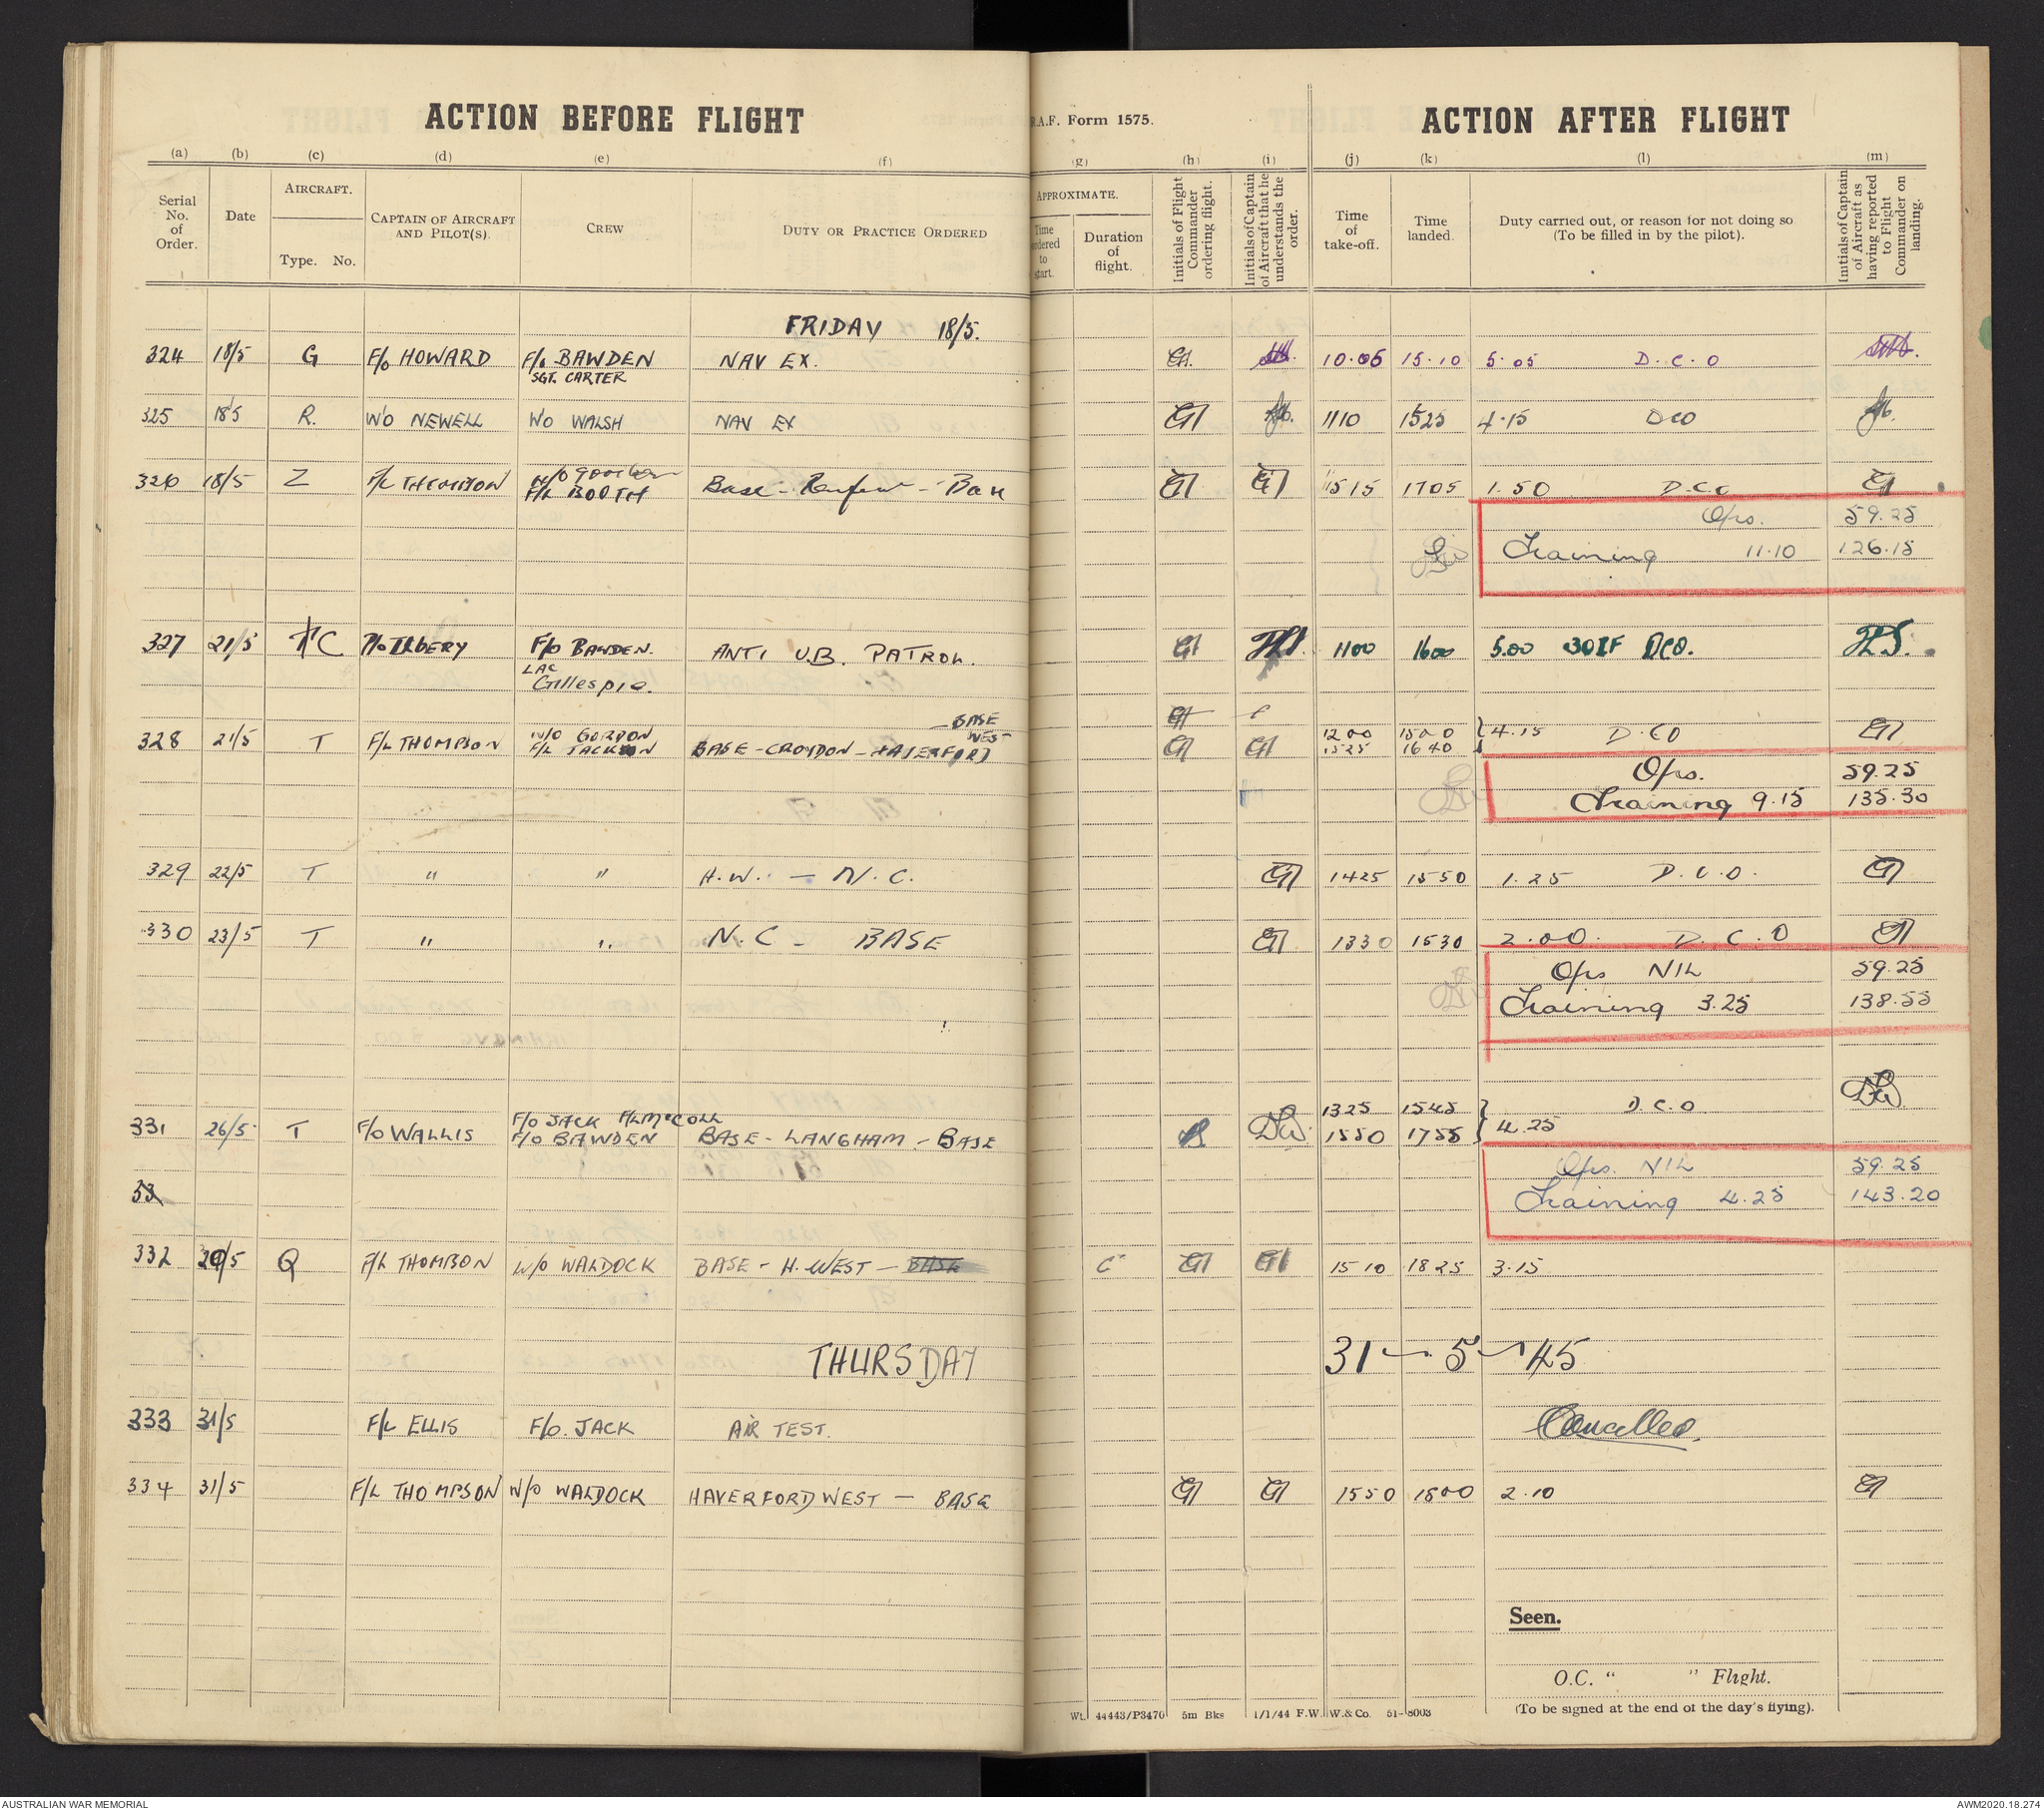 ACTION BEFORE FLIGHT
R.A.F. Form 1575.
ACTION AFTER FLIGHT
(a) (b) (c) (d) (e) (f) (g) (h) (i) (j) (k) (l) (m)
Serial No. of Order.
Date
AIRCRAFT.
Type. No.
CAPTAIN OF AIRCRAFT AND PILOT(S).
CREW
DUTY OR PRACTICE ORDERED
APPROXIMATE.
Time ordered to start.
Duration of flight.
Initials of Flight Commander ordering flight.
Initials of Captain of Aircraft that he understands the order.
Time of take-off.
Time landed.
Duty carried out, or reason for not doing so (To be filled in by the pilot).
Initials of Captain of Aircraft as having reported to Flight Commander on landing.
FRIDAY 18/5.
324 18/5 G F/O HOWARD F/O BAWDEN NAV EX. 10.05 15.10 5.05 D.C.O
SGT. CARTER
325 18/5 R. W/O NEWELL W/O WALSH NAV EX 1110 1525 4.15 DCO
326 18/5 Z F/L THOMPSON W/O Gordon
F/L BOOTH Base - Renfrew - Base GT GT 1515 1705 1.50 D.C.O GT
Ops. 59.25
Training 11.10 126.15
327 21/5 C P/O TILBERY F/O BAWDEN. ANTI U.B. PATROL. GT 1100 1600 5.00 DCO.
LAC
Gillespie.
BASE
328 21/5 T F/L THOMPSON W/O GORDON WEST 1200 1500 } 4.15 D.CO GT
F/L JACKSON BASE - CROYDON - HAVERFORD GT GT 1525 1640
Ops. 59.25
Training 9.15 135.30
329 22/5 T " " H.W. - N.C. GT 1425 1550 1.25 D.C.O. GT
330 23/5 T " " N.C - BASE GT 1330 1530 2.00. D.C.O GT
Ops NIL 59.25
Training 3.25 138.55
F/O JACK F/L McCOLL 1325 1545 } D.C.O
331 26/5 T F/O WALLIS F/O BAWDEN BASE - LANGHAM - BASE 1550 1755 4.25
Ops. NIL 59.25
53
Training 4.25 143.20
332 29/5 Q F/L THOMSON W/O WALDOCK BASE - H. WEST - BASE GT GT 1510 1825 3.15
THURSDAY 31 - 5 - 45
333 31/5 F/L ELLIS F/O. JACK AIR TEST. Cancelled.
334 31/5 F/L THOMPSON W/O WALDOCK HAVERFORDWEST - BASE GT GT 1550 1800 2.10 GT
Seen.
O.C. " " Flight.
(To be signed at the end of the day's flying).
Wt. 44443/P3470 5m Bks 1/1/44 F.W. W. & Co. 51-8003
AUSTRALIAN WAR MEMORIAL
AWM2020.18.274